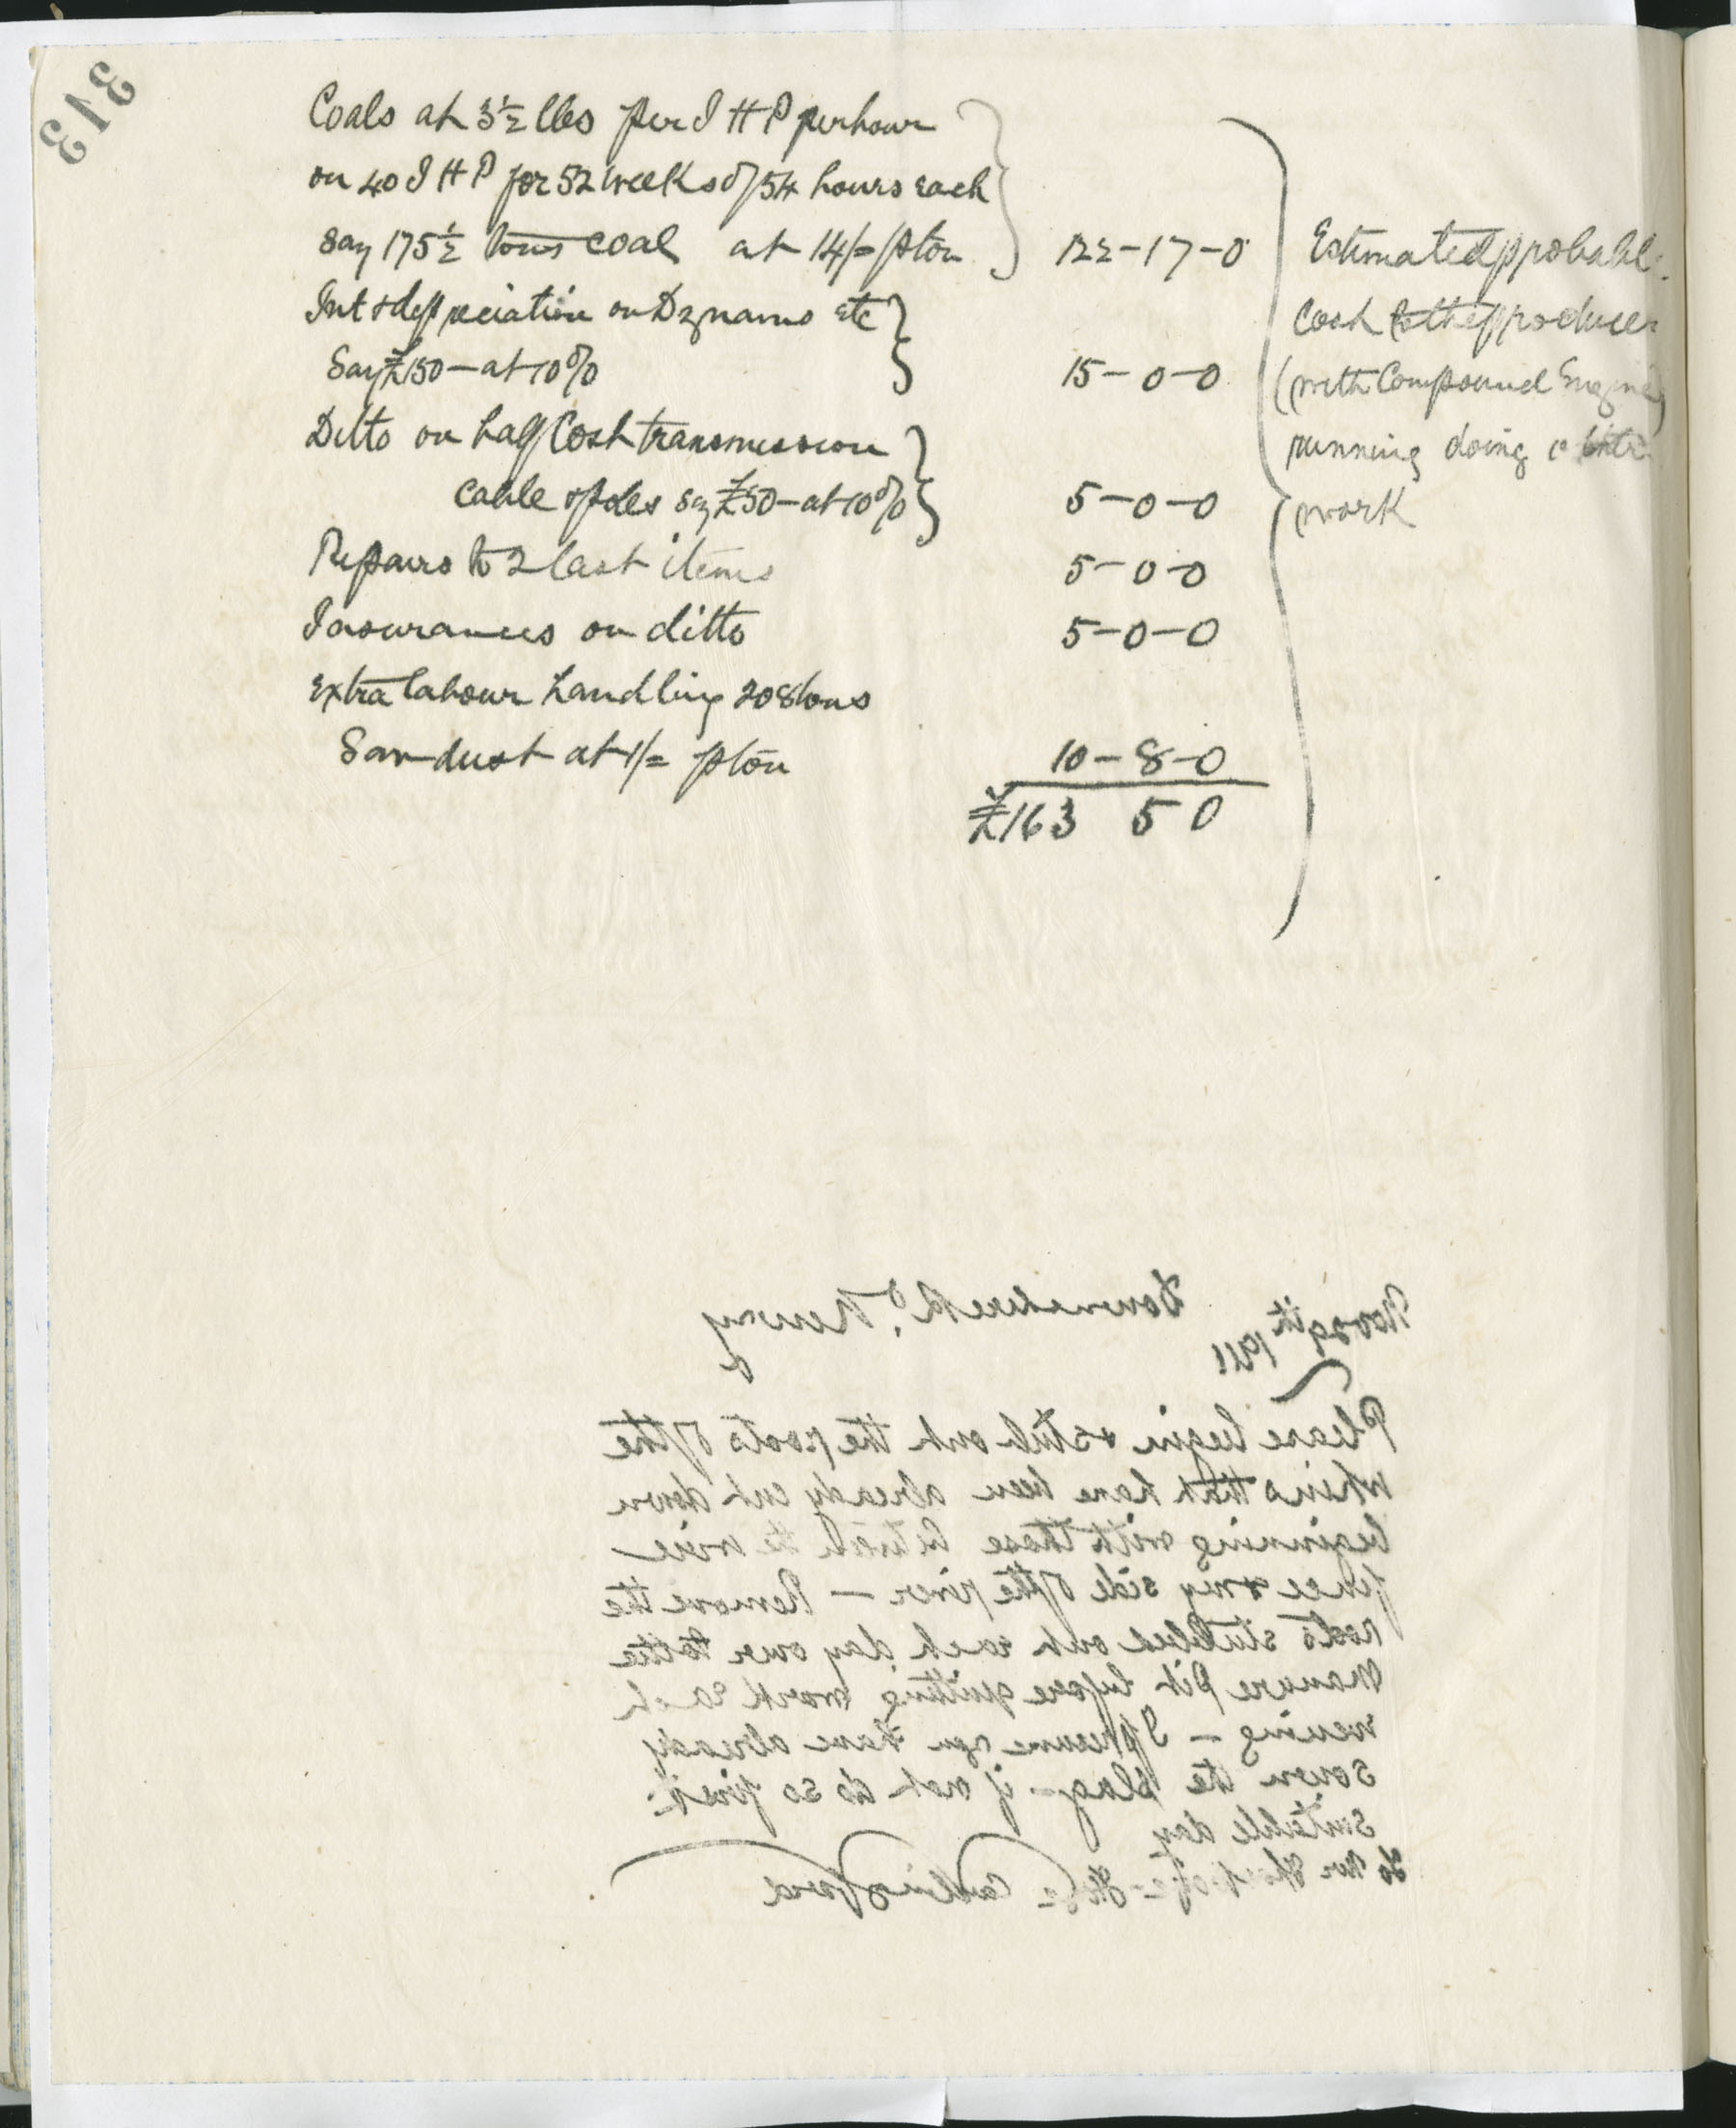 313
Coals at 3½ lbs per I H P per hour
on 40 I H P for 52 weeks of 54 hours each
say 175½ tons coal at 14/= p ton 122-17-0
Int & depreciation on Dynamo etc
Say £150 - at 10% 15-0-0
Ditto on half Cost transmission
cable & poles say £50 - at 10% 5-0-0
Repairs to 2 last items 5-0-0
Insurances on ditto 5-0-0
Extra labour handling 208 tons
Sawdust at 1/= p ton 10-8-0
£163 5 0
Estimated probable
Cost to the producer
(with Compound Engine)
running doing
work
Downshire Rd. Newry
Nov 9th 1911
Please begin & stub out the roots of the
whins that have been already cut down
beginning with those between the wire
fence & my side of the river - Remove the
roots stubbed out each day over to the
manure Pit before quitting work each
evening - I presume you have already
sown the slag - if not do so first
suitable day
To Mr Carlingford